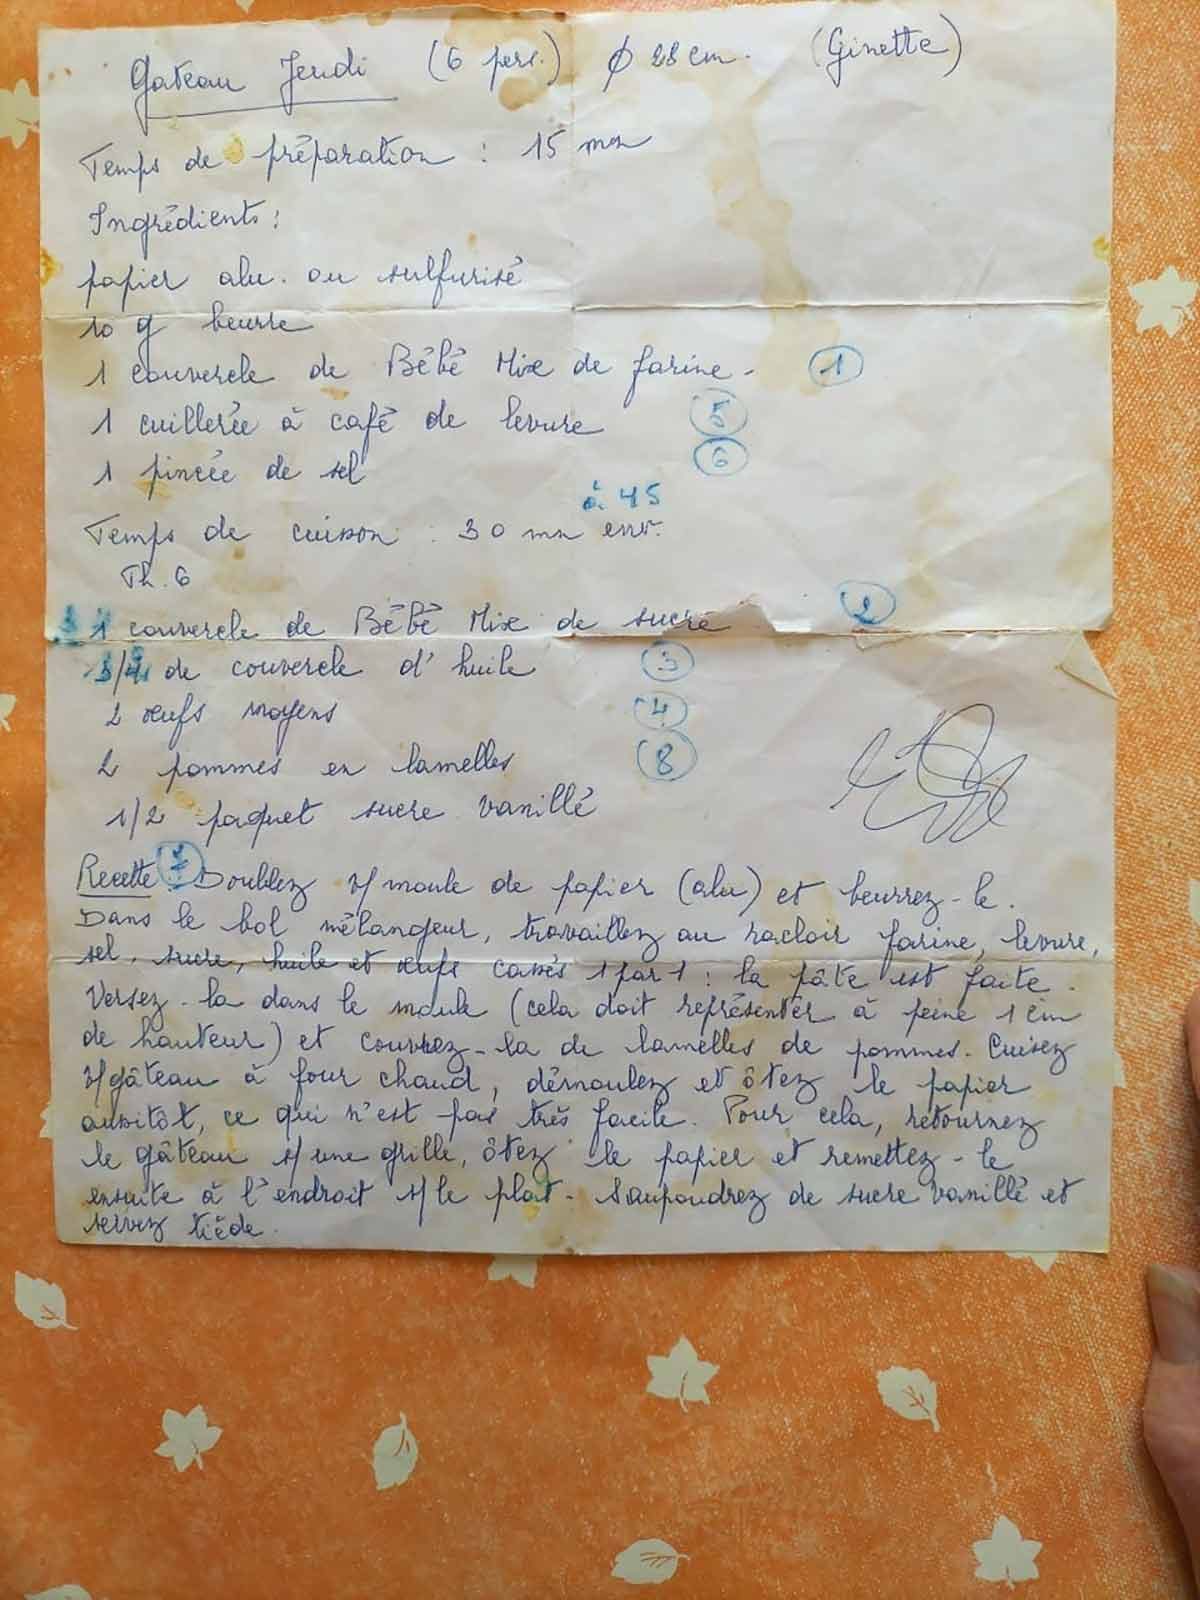 Gateau Jeudi (6 pers.) ϕ 28 cm. (Ginette)
Temps de préparation : 15 mn
Ingrédients :
papier alu. ou sulfurisé
10 g beurre
1 couvercle de Bébé Mix de farine - 1
1 cuillerée à café de levure 5
1 pincée de sel 6
à 45
Temps de cuisson : 30 mn env.
Th. 6
1 couvercle de Bébé Mix de sucre 2
3/4 de couvercle d'huile 3
2 œufs moyens 4
2 pommes en lamelles 8
1/2 paquet sucre vanillé
Recette 7 Doublez v/ moule de papier (alu) et beurrez-le.
Dans le bol mélangeur, travaillez au racloir farine, levure,
sel, sucre, huile et œufs cassés 1 par 1 : la pâte est faite.
Versez-la dans le moule (cela doit représenter à peine 1 cm
de hauteur) et couvrez-la de lamelles de pommes. Cuisez
v/ gâteau à four chaud, démoulez et ôtez le papier
aussitôt, ce qui n'est pas très facile. Pour cela, retournez
le gâteau s/ une grille, ôtez le papier et remettez-le
ensuite à l'endroit s/ le plat. Saupoudrez de sucre vanillé et
servez tiède.